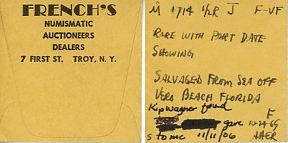 FRENCH'S
NUMISMATIC
AUCTIONEERS
DEALERS
7 FIRST ST. TROY, N. Y.
M 1714 1/2R J F-VF
RARE WITH PART DATE
SHOWING
SALVAGED FROM SEA OFF
VERO BEACH FLORIDA
Kip Wagner found F
gave 10-29-65
to me 11/11/06